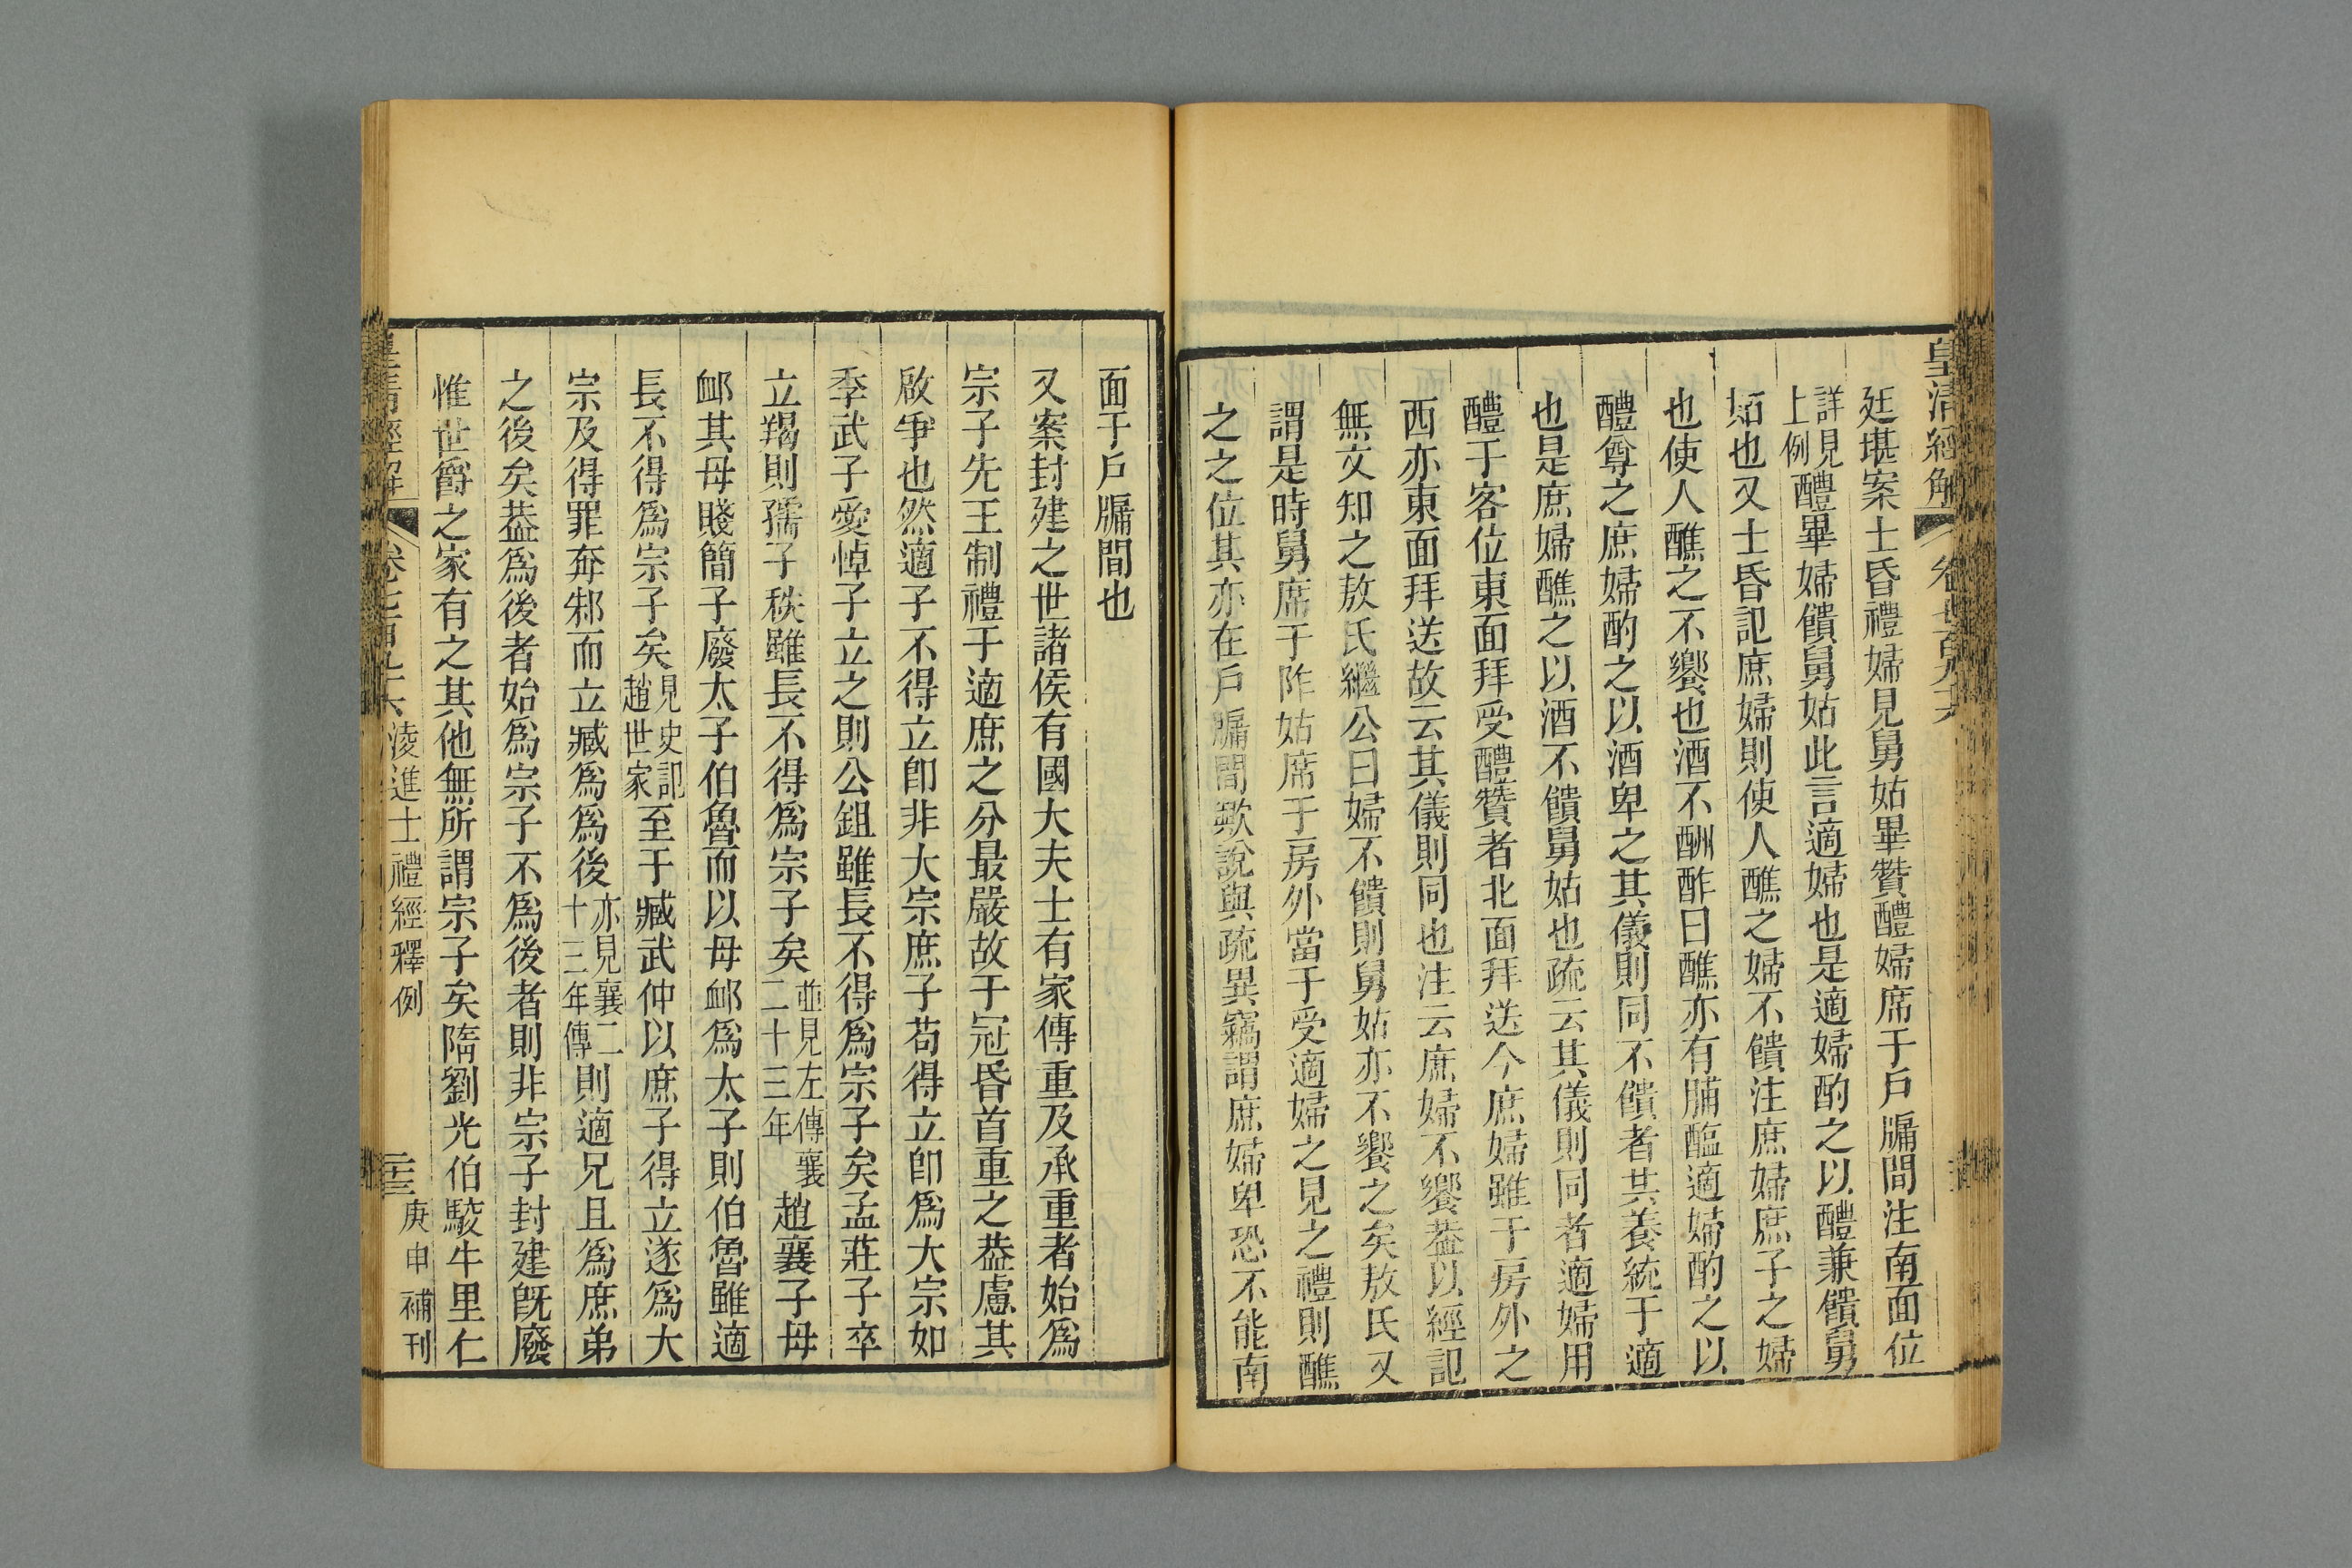 皇清經解
廷堪案士昏禮婦見舅姑畢贊醴婦席于戶牖間注南面位
詳見上例醴畢婦饋舅姑此言適婦也是適婦酌之以醴兼饋舅
姑也又士昏記庶婦則使人醮之婦不饋注庶婦庶子之婦
也使人醮之不饗也酒不酬酢曰醮亦有脯醢適婦酌之以
醴尊之庶婦酌之以酒卑之其儀則同不饋者其養統于適
也是庶婦醮之以酒不饋舅姑也疏云其儀則同者適婦用
醴于客位東面拜受醴贊者北面拜送今庶婦雖于房外之
西亦東面拜送故云其儀則同也注云庶婦不饗葢以經記
無文知之敖氏繼公曰婦不饋則舅姑亦不饗之矣敖氏又
謂是時舅席于阼姑席于房外當于受適婦之見之禮則醮
之之位其亦在戶牖間歟說與疏異竊謂庶婦卑恐不能南
面于戶牖間也
又案封建之世諸侯有國大夫士有家傳重及承重者始爲
宗子先王制禮于適庶之分最嚴故于冠昏首重之葢慮其
啟爭也然適子不得立卽非大宗庶子苟得立卽爲大宗如
季武子愛悼子立之則公鉏雖長不得爲宗子矣孟莊子卒
立羯則孺子秩雖長不得爲宗子矣並見左傳襄二十三年趙襄子毋
卹其母賤簡子廢太子伯魯而以毋卹爲太子則伯魯雖適
長不得爲宗子矣見史記趙世家至于臧武仲以庶子得立遂爲大
宗及得罪奔邾而立臧爲爲後亦見襄二十三年傳則適兄且爲庶弟
之後矣葢爲後者始爲宗子不爲後者則非宗子封建旣廢
惟世爵之家有之其他無所謂宗子矣隋劉光伯駮牛里仁
皇清經解 卷七百九十六 淩進士禮經釋例 三 庚申補刊